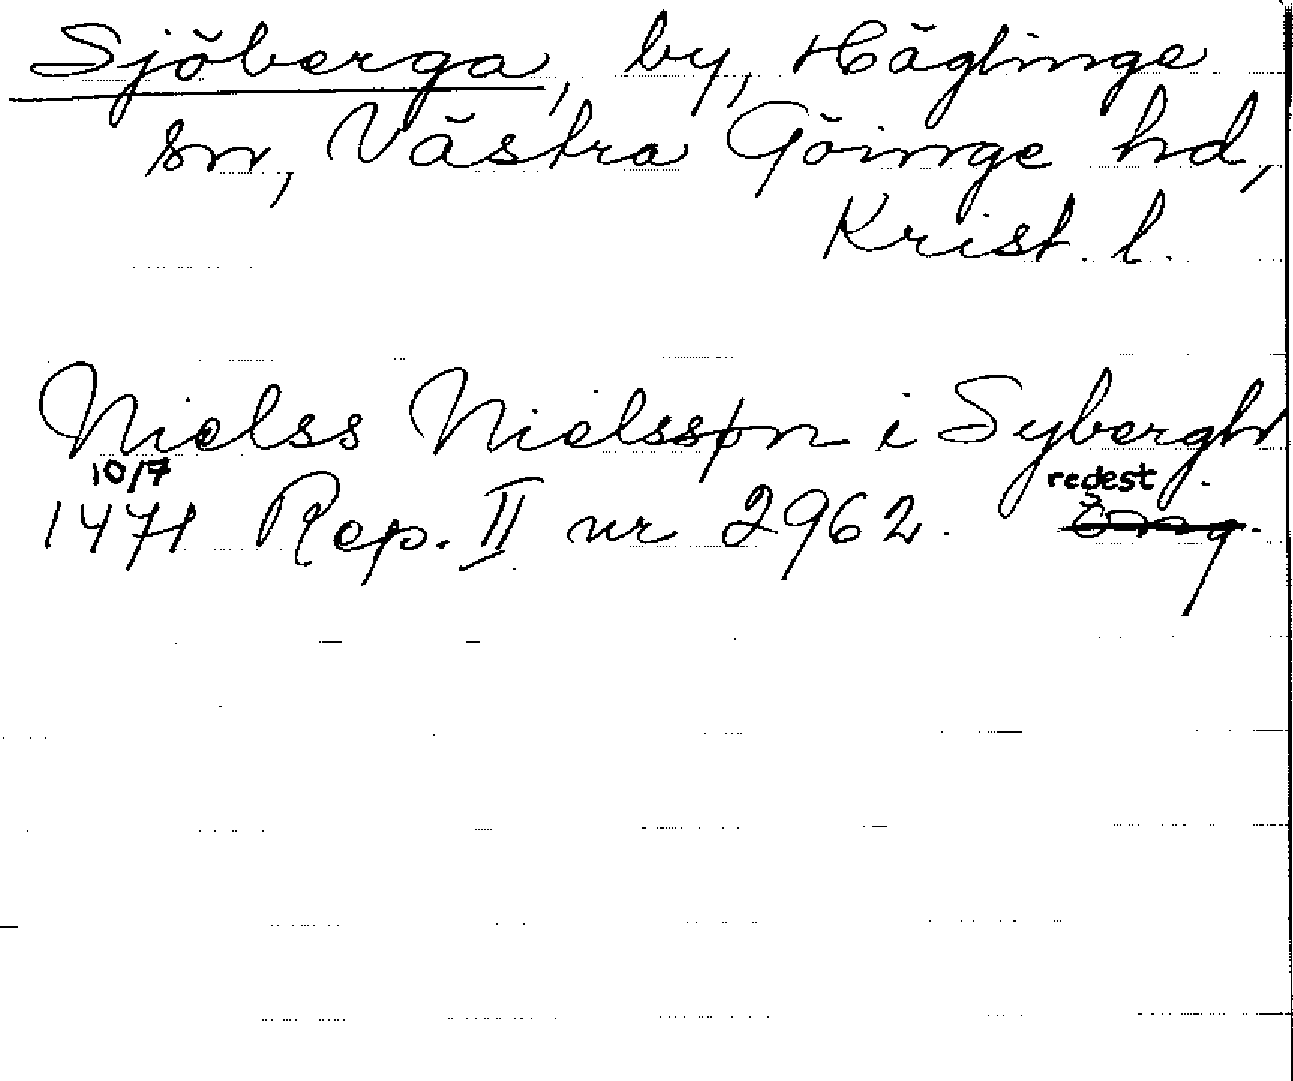 Sjöberga, by, Häglinge
sn, Västra Göinge hd,
Krist. l.
Nielss Nielssøn i Sybergh
10/7 redest.
1471 Rep. II nr 2962.